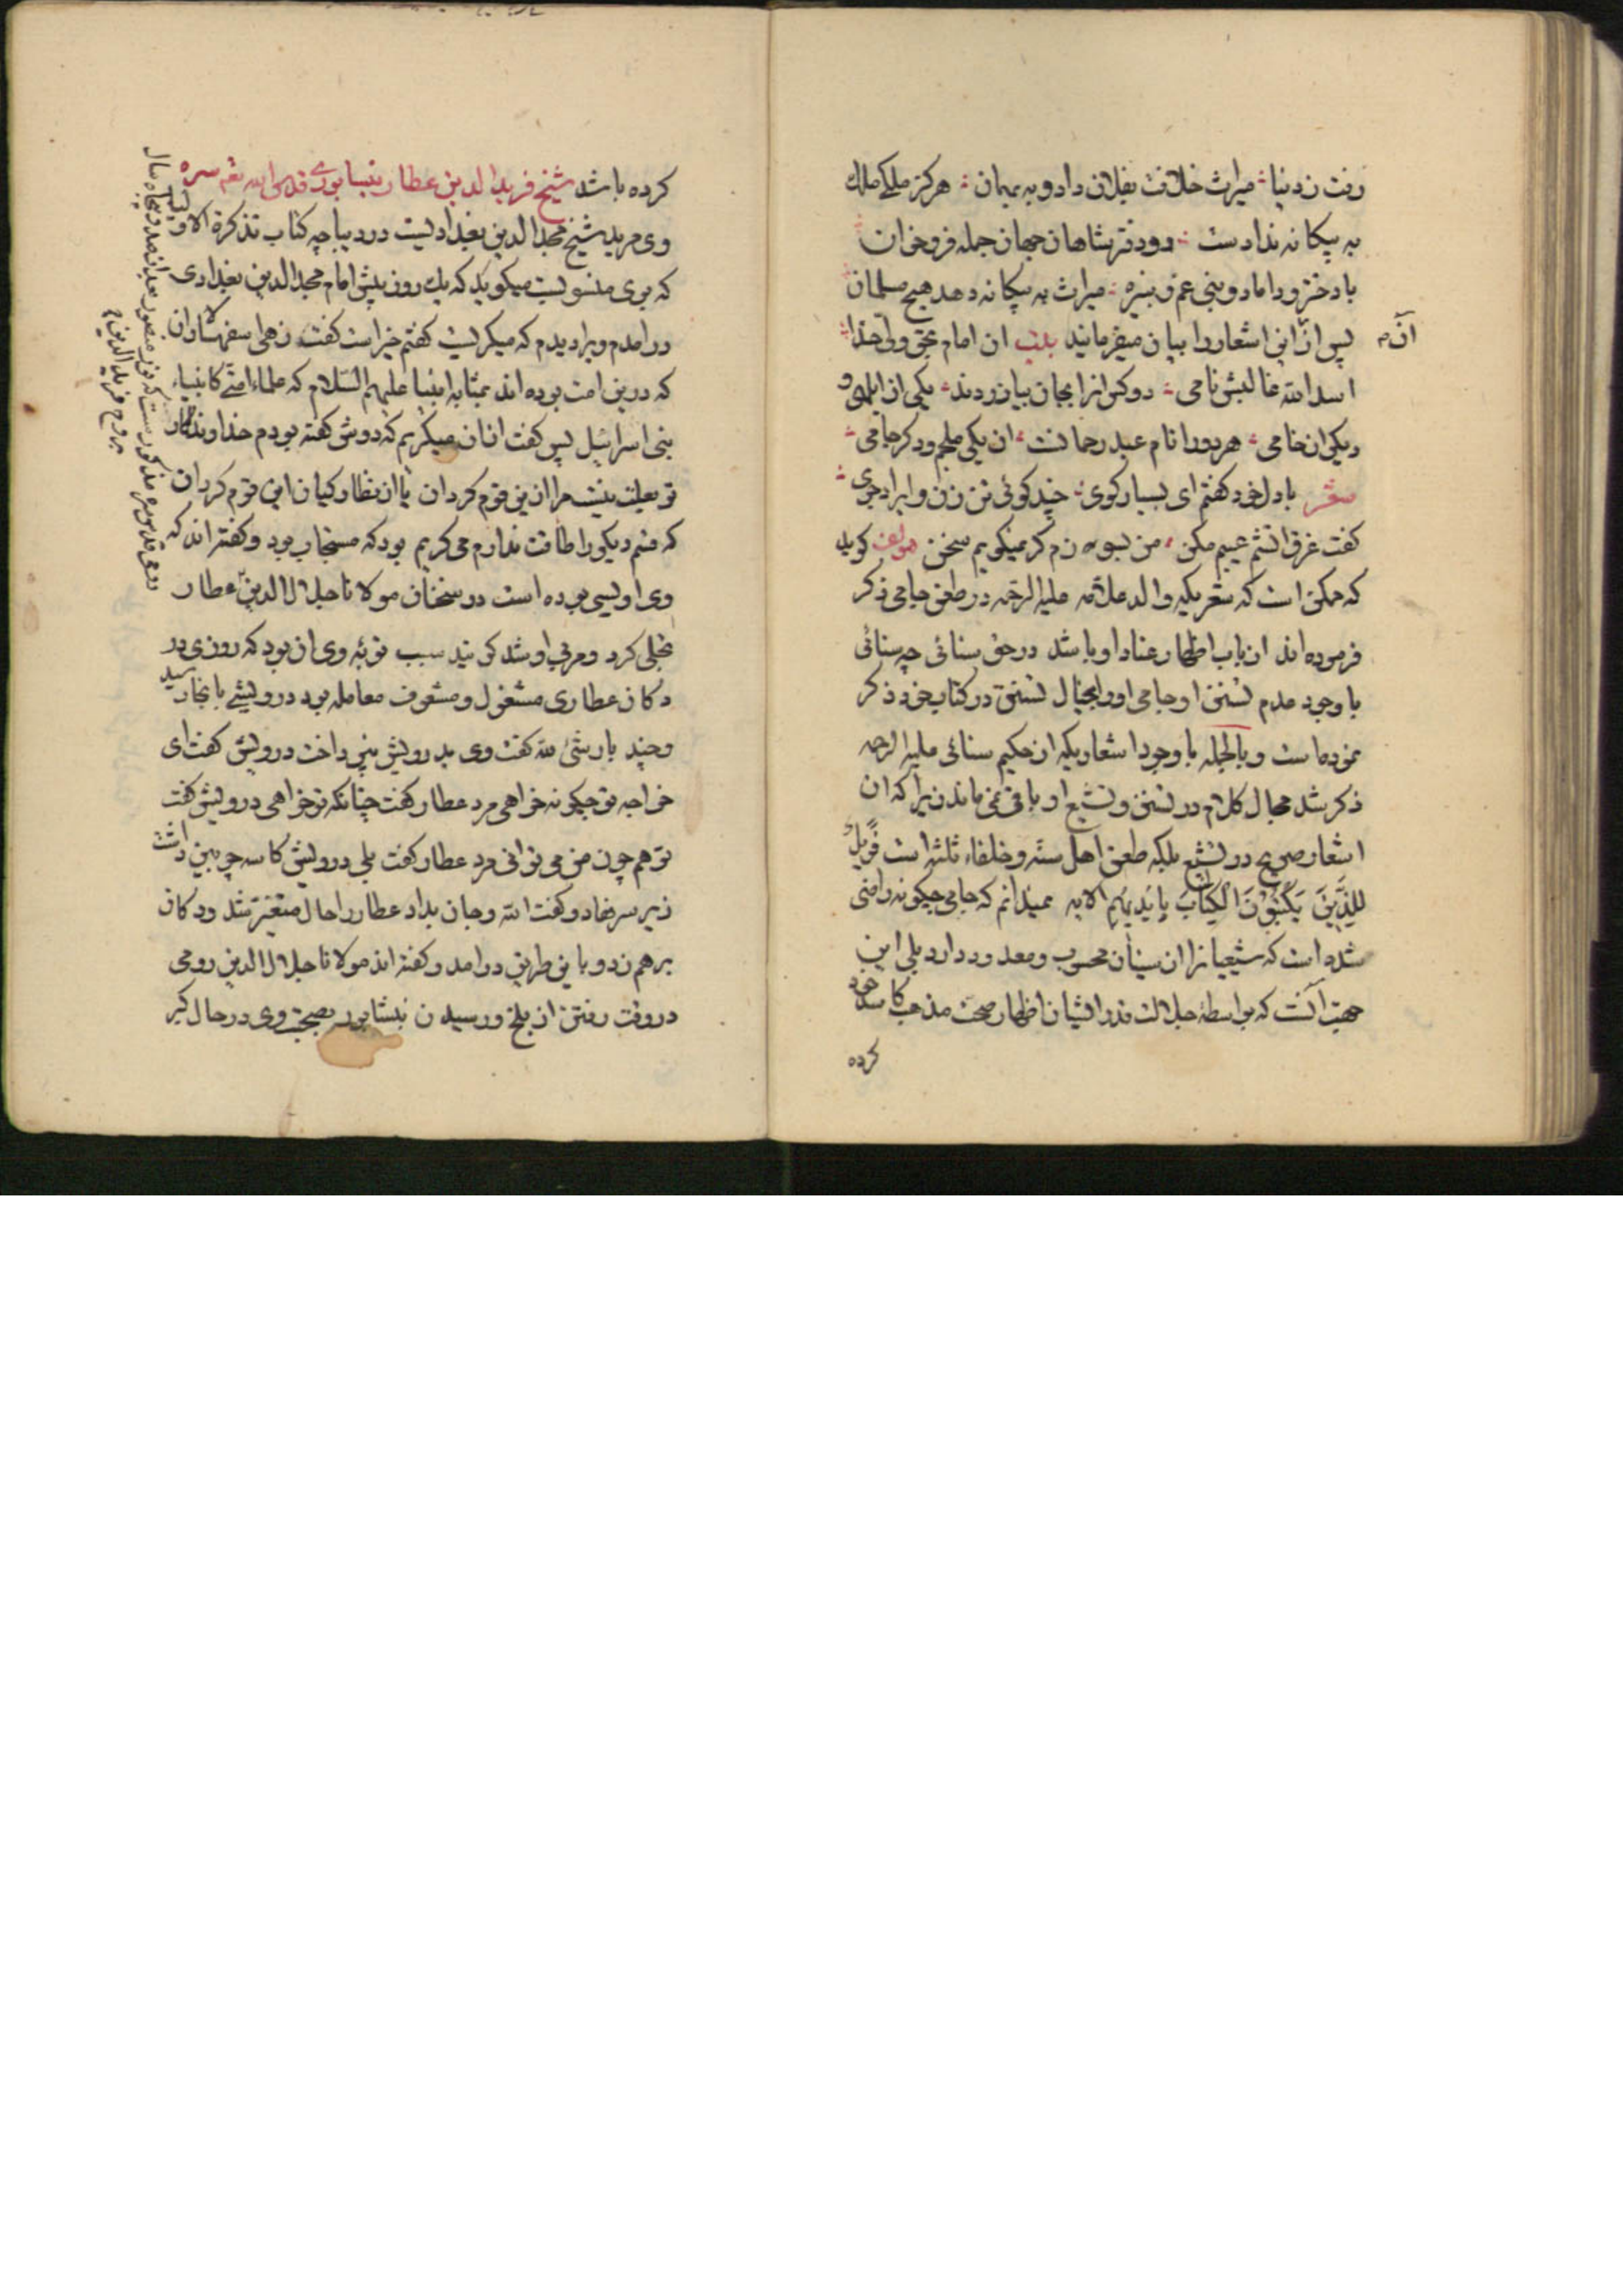 رفت ز دنیا میراث خلافت بفلان داد و به بهمان هرگز ملکی ملک
به بیکانه ندادست رو دفتر شاهان جهان جمله فرو خوان
با دختر و داماد و بنی عم و نبیره میراث به بیکانه دهد هیچ مسلمان
پس از آن این اشعار را بیان میفرمایند بیت ان امام بحق ولی خدا
اسد الله غالبش نامی دو کس او را بجان بیازردند یکی از ابلهی و
دیکی از خامی هر دو را نام عبد رحمانست ان یکی ملجم و دکر جامی
شعر با دل خود کفتم ای بسیار کوی چند کوئی تن زن و اسرار جوی
کفت غرق اتشم عیبم مکن من بسوزم کر نمیکویم سخن مولف کوید
که ممکن است که شعریکه والد علامه علیه الرحمه در طعن جامی ذکر
فرموده اند از باب اظهار عناد او باشد در حق سنائی چه سنائی
با وجود عدم تسنن او جامی او را بخیال تسنن در کتاب خود ذکر
نموده است و بالجمله با وجود اشعاریکه از حکیم سنائی علیه الرحمه
ذکر شد مجال کلام در تسنن و تشیع او باقی نمی ماند زیرا که ان
اشعار صریح در تشیع بلکه طعن اهل سنه و خلفاء ثلثه است فویل
للذین یکتبون الکتاب بایدیهم الایه نمیدانم که جامی چکونه راضی
شده است که شیعیانرا از سنیان محسوب و معدود دارد بلی این
جهت آنست که بواسطهٔ جلالت قدر ایشان اظهار صحت مذهب کاسد خود
کرده
آن
کرده باشد شیخ فرید الدین عطار نیشابوری قدس الله تعالی سره
وی مرید شیخ مجد الدین بغدادیست در دیباچه کتاب تذکرة الاولیا
که بوی منسوبست میکوید که یک روز پیش امام مجد الدین بغدادی
در امدم ویرا دیدم که میکریست کفتم خیر است کفت زهی سفهسالاران
که درین امت بوده اند بمثابه انبیا علیهم السلام که علماء امتی کانبیاء
بنی اسرائیل پس کفت از ان میکریم که دوش کفته بودم خداوندا کار
تو بعلت نیست مرا ازین قوم کردان یا از نظارکیان این قوم کردان
که قسم دیکر را طاقت ندارم می کریم بود که مستجاب بود و کفته اند که
وی اویسی بوده است در سخنان مولانا جلال الدین عطار
تجلی کرد و مربی او شد کویند سبب توبه وی ان بود که روزی در
دکان عطاری مشغول و مشعوف معامله بود درویشی بانجا رسید
و چند بار شئ لله کفت وی بدرویش نپرداخت درویش کفت ای
خواجه تو چکونه خواهی مرد عطار کفت چنانکه تو خواهی درویش کفت
تو هم چون من می توانی مرد عطار کفت بلی درویش کاسه چوبین داشت
زیر سر نهاد و کفت الله و جان بداد عطار را حال متغیر شد و دکان
برهم زد و باین طریق در امد و کفته اند مولانا جلال الدین رومی
در وقت رفتن از بلخ و رسیدن نیشابور بصحبت وی در حال کبر
رومی قدس سره مذکورست که نور منصور بعد از صد و پنجاه سال
بروح فرید الدین